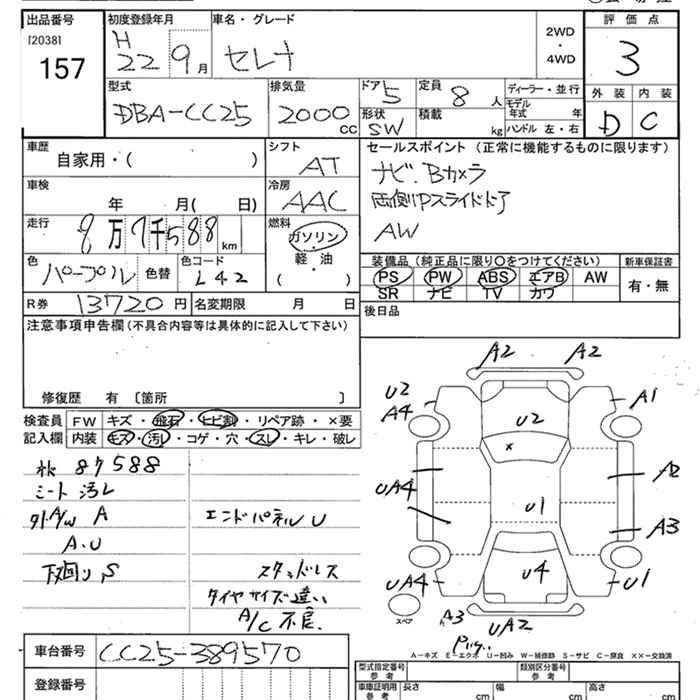 出品番号 初度登録年月 車名・グレード 評価点
[2038]
157
H
22 9月 セレナ
2WD
・
4WD
3
型式 排気量 ドア 5 定員 8人 ディーラー・並行
DBA-CC25 2000CC 形状 SW 積載 kg モデル年式 年 ハンドル 左・右
外装 内装
D C
車歴 自家用・( ) シフト AT
セールスポイント(正常に機能するものに限ります)
ナビ.Bカメラ
両側Pスライドドア
AW
車検 年 月( 日) 冷房 AAC
走行 8万7千588km 燃料 ガソリン・軽・油 ( )
色 パープル 色替 色コード L42
装備品(純正品に限り○をつけてください) 新車保証書
PS PW ABS エアB AW 有・無
SR ナビ TV カワ
R券 13720円 名変期限 月 日
後日品
注意事項申告欄(不具合内容等は具体的に記入して下さい)
修復歴 有 〔箇所 〕
検査員 FW キズ・飛石・ヒビ割・リペア跡・×要
記入欄 内装 キズ・汚レ・コゲ・穴・スレ・キレ・破レ
87588
シート 汚レ
外A/W A
A.U
下廻り S
エンドパネル U
スタッドレス
タイヤサイズ違い
A/C 不良.
A2 A2
U2
A4
A1
U2
×
UA4
A2
U1
A3
UA4
U4
U1
スペア
A3
UA2
A-キズ E-エクボ U-凹み W-補修跡 S-サビ C-腐食 ××-交換済
車台番号 CC25-389570
登録番号
型式指定番号 参考 類別区分番号 参考
車庫証明用 参考 長さ cm 幅 cm 高さ cm